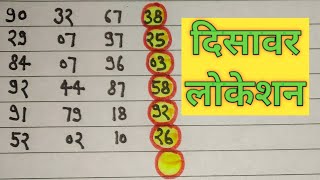 90 3२ 67 38
२9 07 97 २5
84 07 96 03
9२ 44 87 58
91 79 18 9२
5२ 0२ 10 २6
दिसावर
लोकेशन